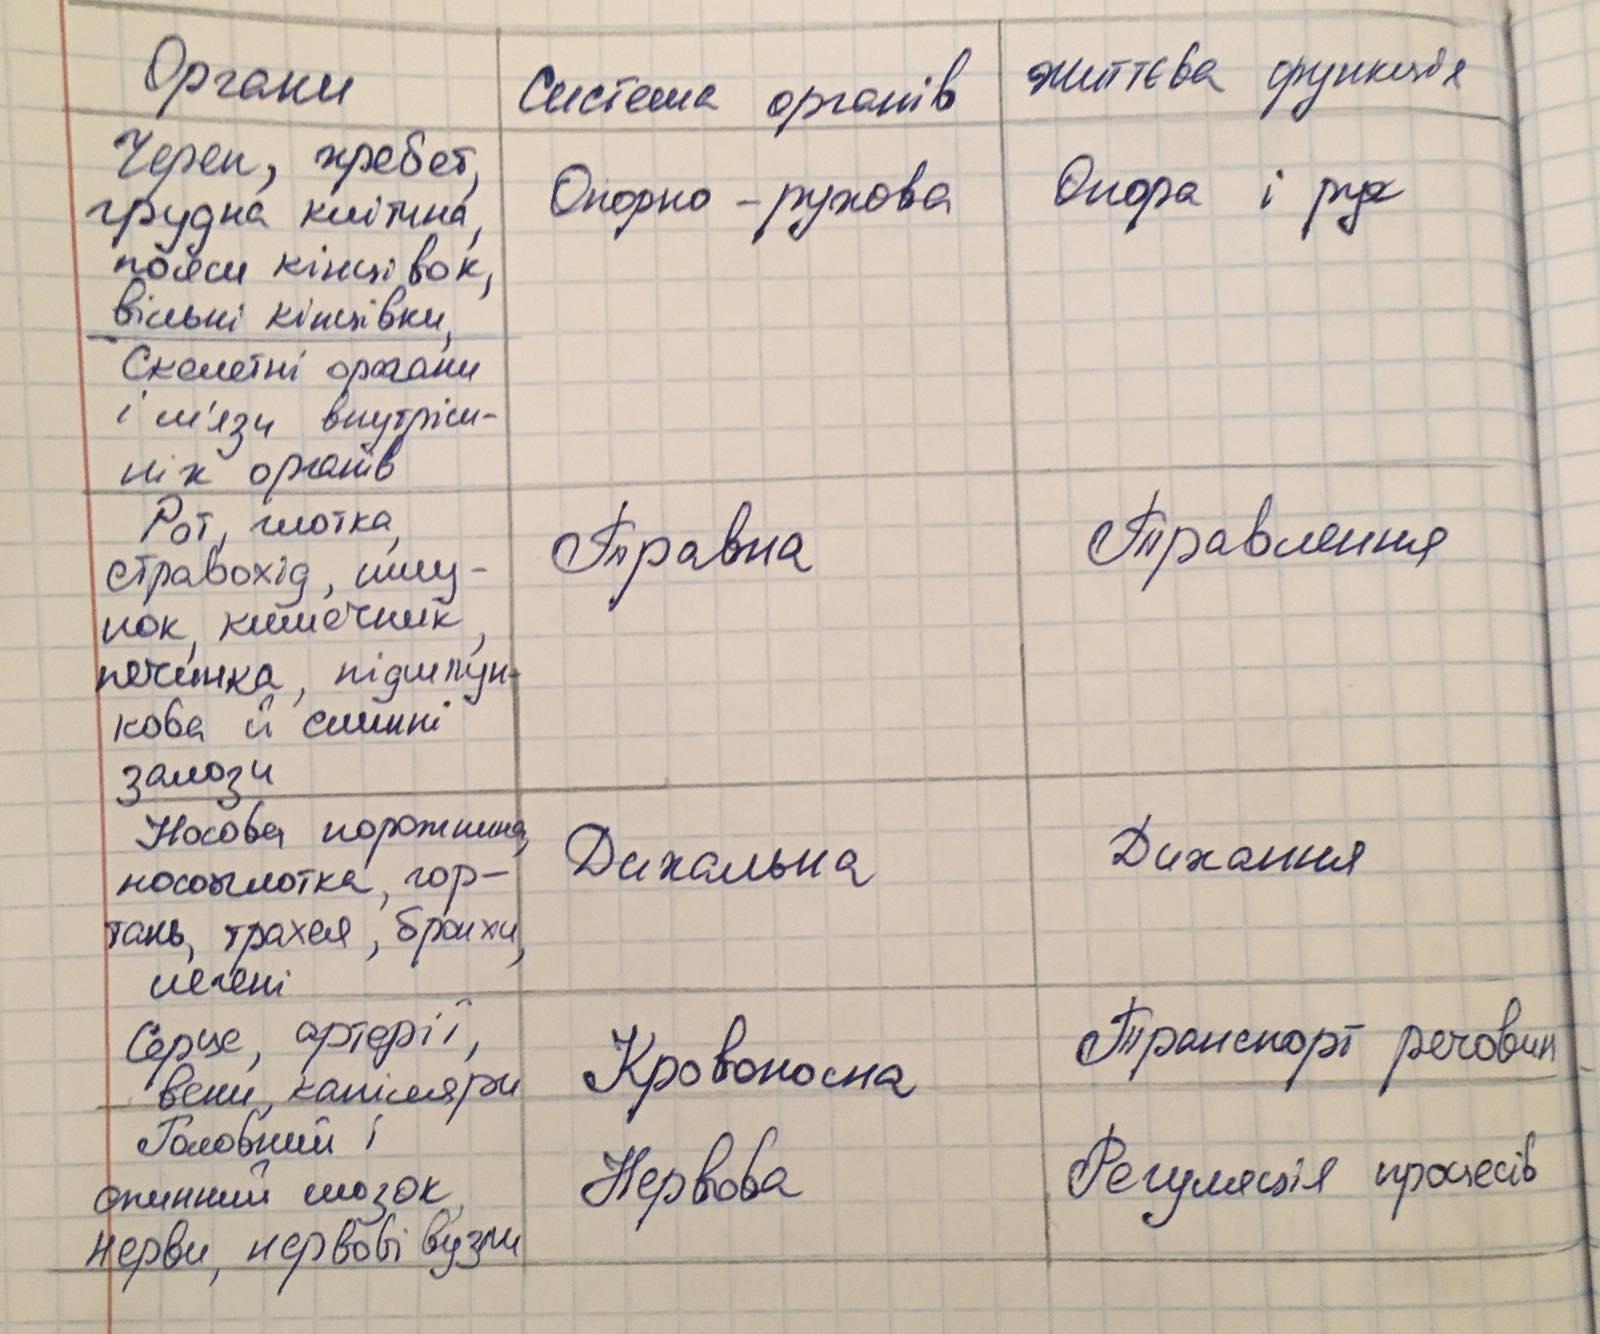 Органи
Система органів
життєва функція
Череп, хребет,
грудна клітина,
пояси кінцівок,
вільні кінцівки,
Опорно-рухова
Опора і рух
Скелетні органи
і м'язи внутріш-
ніх органів
Рот, глотка,
стравохід, шлу-
нок, кишечник,
печінка, підшлун-
кова й слинні
залози
Травна
Травлення
Носова порожнина,
носоглотка, гор-
тань, трахея, бронхи,
легені
Дихальна
Дихання
Серце, артерії,
вени, капіляри
Кровоносна
Транспорт речовин
Головний і
спинний мозок,
нерви, нервові вузли
Нервова
Регуляція процесів